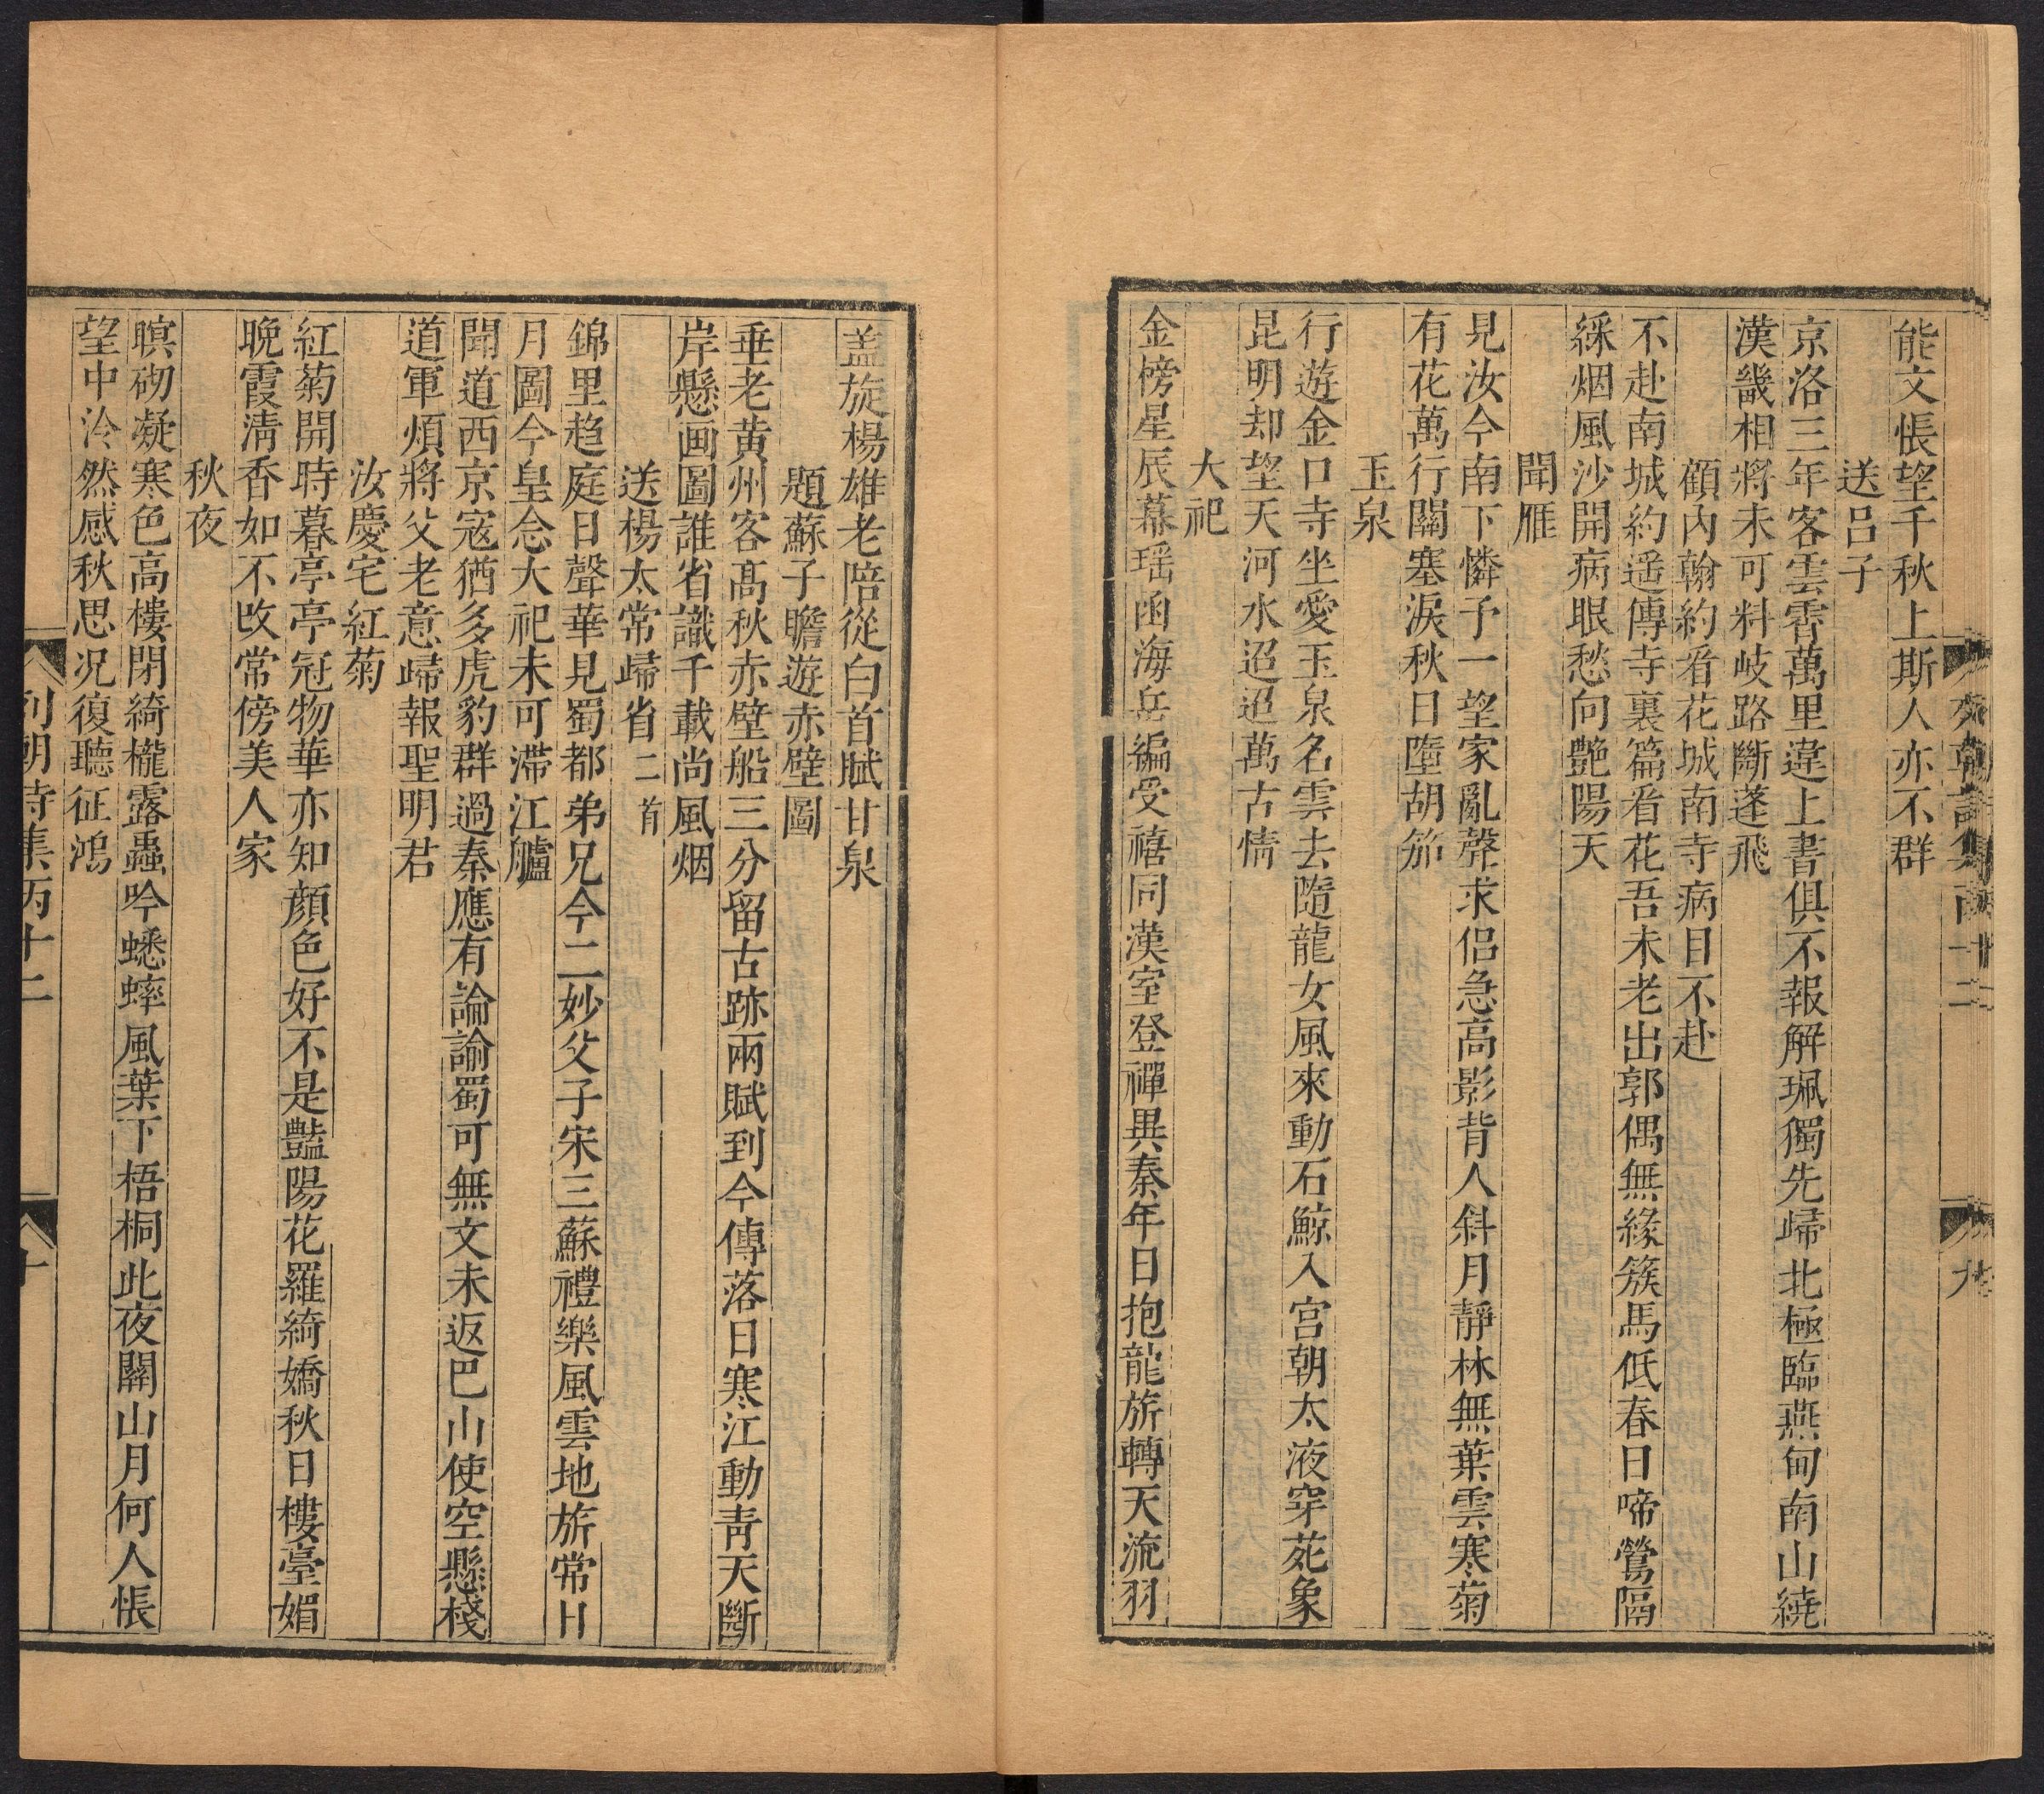 能文悵望千秋上斯人亦不群
送呂子
京洛三年客雲霄萬里違上書俱不報解珮獨先歸北極臨燕甸南山繞
漢畿相將未可料岐路斷蓬飛
顧內翰約看花城南寺病目不赴
不赴南城約遥傳寺裏篇看花吾未老出郭偶無緣簇馬低春日啼鶯隔
綵烟風沙開病眼愁向艶陽天
聞雁
見汝今南下憐予一望家亂聲求侶急高影背人斜月靜林無葉雲寒菊
有花萬行關塞淚秋日墮胡笳
玉泉
行遊金口寺坐愛玉泉名雲去隨龍女風來動石鯨入宮朝太液穿苑象
昆明却望天河水迢迢萬古情
大祀
金榜星辰幕瑶函海岳編受禧同漢室登禪異秦年日抱龍旂轉天流羽
列朝詩集丙十二
九
盖旋楊雄老陪從白首賦甘泉
題蘇子瞻遊赤壁圖
垂老黄州客髙秋赤壁船三分留古跡兩賦到今傳落日寒江動青天斷
岸懸画圖誰省識千載尚風烟
送楊太常歸省二首
錦里趋庭日聲華見蜀都弟兄今二妙父子宋三蘇禮樂風雲地旂常日
月圖今皇念大祀未可滯江艫
聞道西京寇猶多虎豹群過秦應有論諭蜀可無文未返巴山使空懸棧
道軍煩將父老意歸報聖明君
汝慶宅紅菊
紅菊開時暮亭亭冠物華亦知顔色好不是豔陽花羅綺嬌秋日樓臺媚
晚霞淸香如不改常傍美人家
秋夜
暝砌凝寒色高樓閉綺櫳露蟲吟蟋蟀風葉下梧桐此夜關山月何人悵
望中泠然感秋思况復聽征鴻
列朝詩集丙十二
十